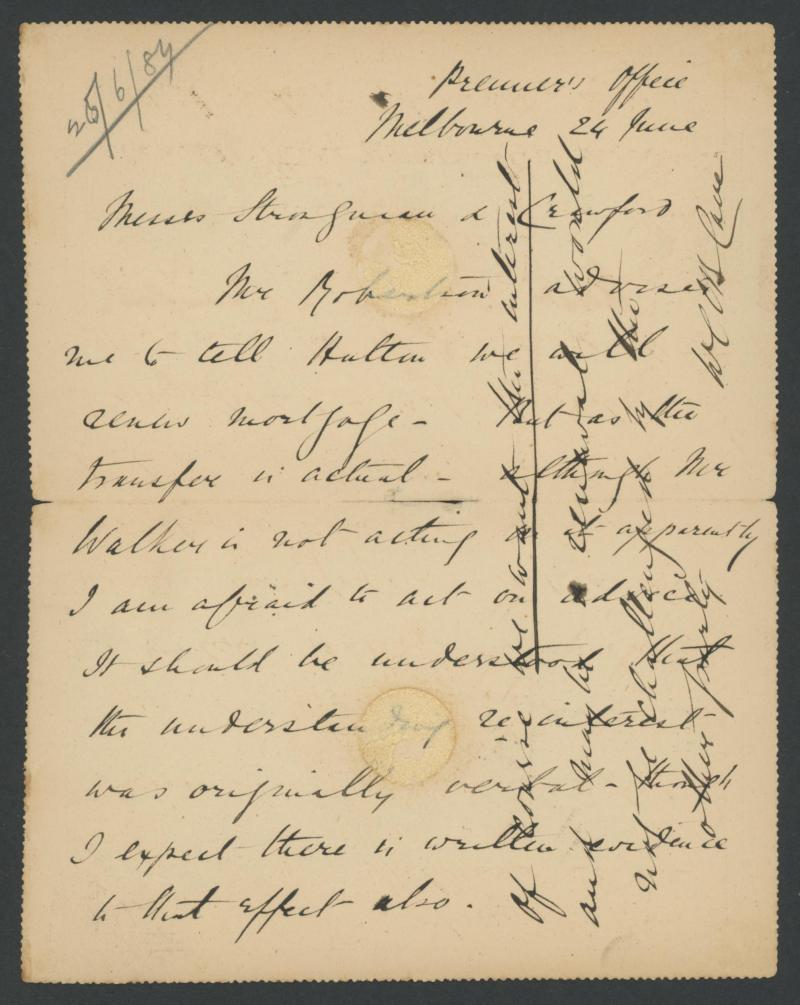 25/6/84
Premier's Office
Melbourne 24 June
Messrs Strongman & Crawford
Mr Robertson advises
me to tell Hutton we will
renew mortgage - But as the
transfer is actual - although Mr
Walker is not acting on it apparently
I am afraid to act on advice
It should be understood that
the understanding re interest
was originally verbal - though
I expect there is written evidence
to that effect also.
Of course we want the interest
and may be renewal then would
not be challenged by the
other party